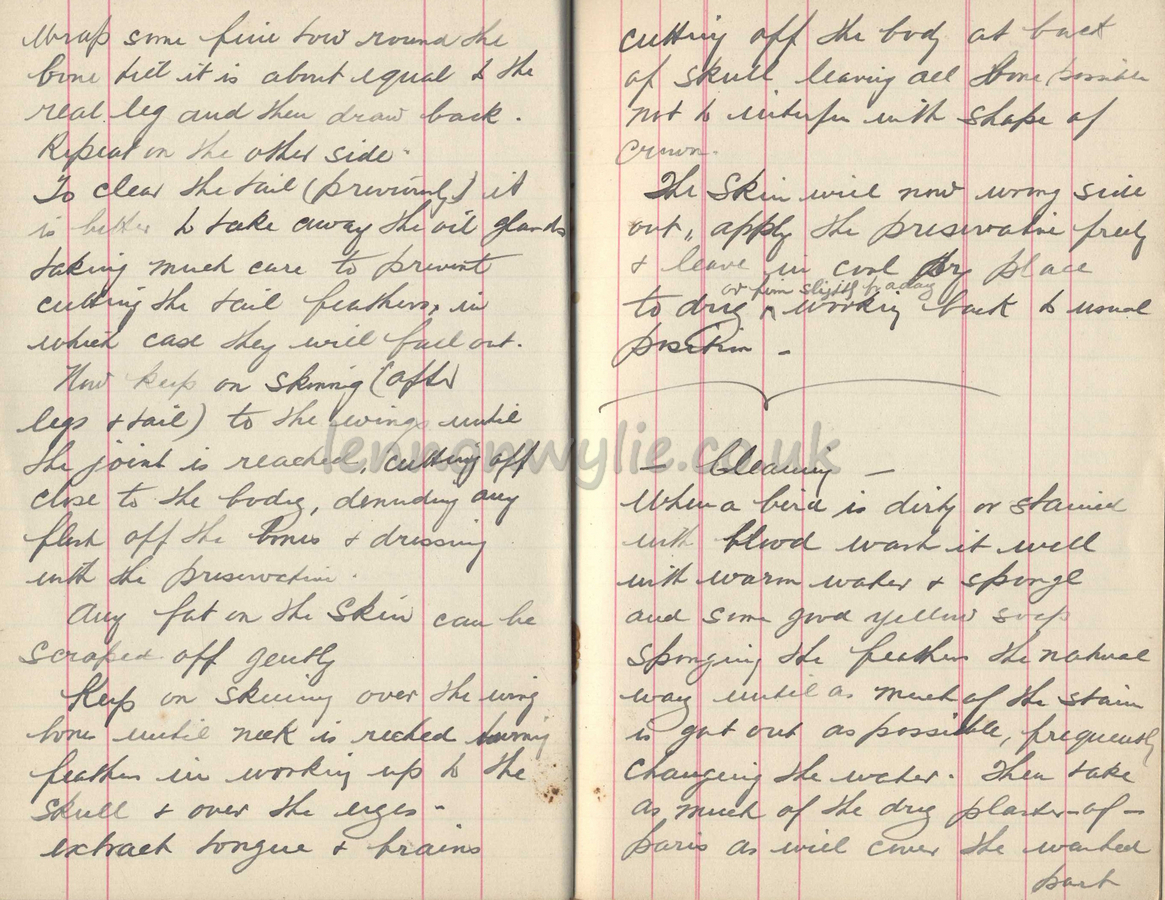 Wrap some fine tow round the
bone till it is about equal to the
real leg and then draw back.
Repeat on the other side.
To clear the tail (previously) it
is better to take away the oil glands
taking much care to prevent
cutting the tail feathers, in
which case they will fall out.
Now keep on skinning (after
legs & tail) to the wings until
the joint is reached, cutting off
close to the body, denuding any
flesh off the bones & dressing
with the preservative.
Any fat on the skin can be
scraped off gently
Keep on skinning over the wing
bones until neck is reched turning
feathers in working up to the
skull & over the eyes -
extract tongue & brains
cutting off the body at back
of skull leaving all bone possible
not to interfere with shape of
crown.
The skin will now wrong side
out, apply the preservative freely
& leave in cool dry place
or turn slightly
to dry ^ working back to usual
position -
- Cleaning -
When a bird is dirty or stained
with blood wash it well
with warm water & sponge
and some good yellow soap
sponging the feathers the natural
way until as much of the stain
is got out as possible, frequently
changing the water. Then take
as much of the dry plaster-of-
paris as will cover the washed
part
lennonwylie.co.uk